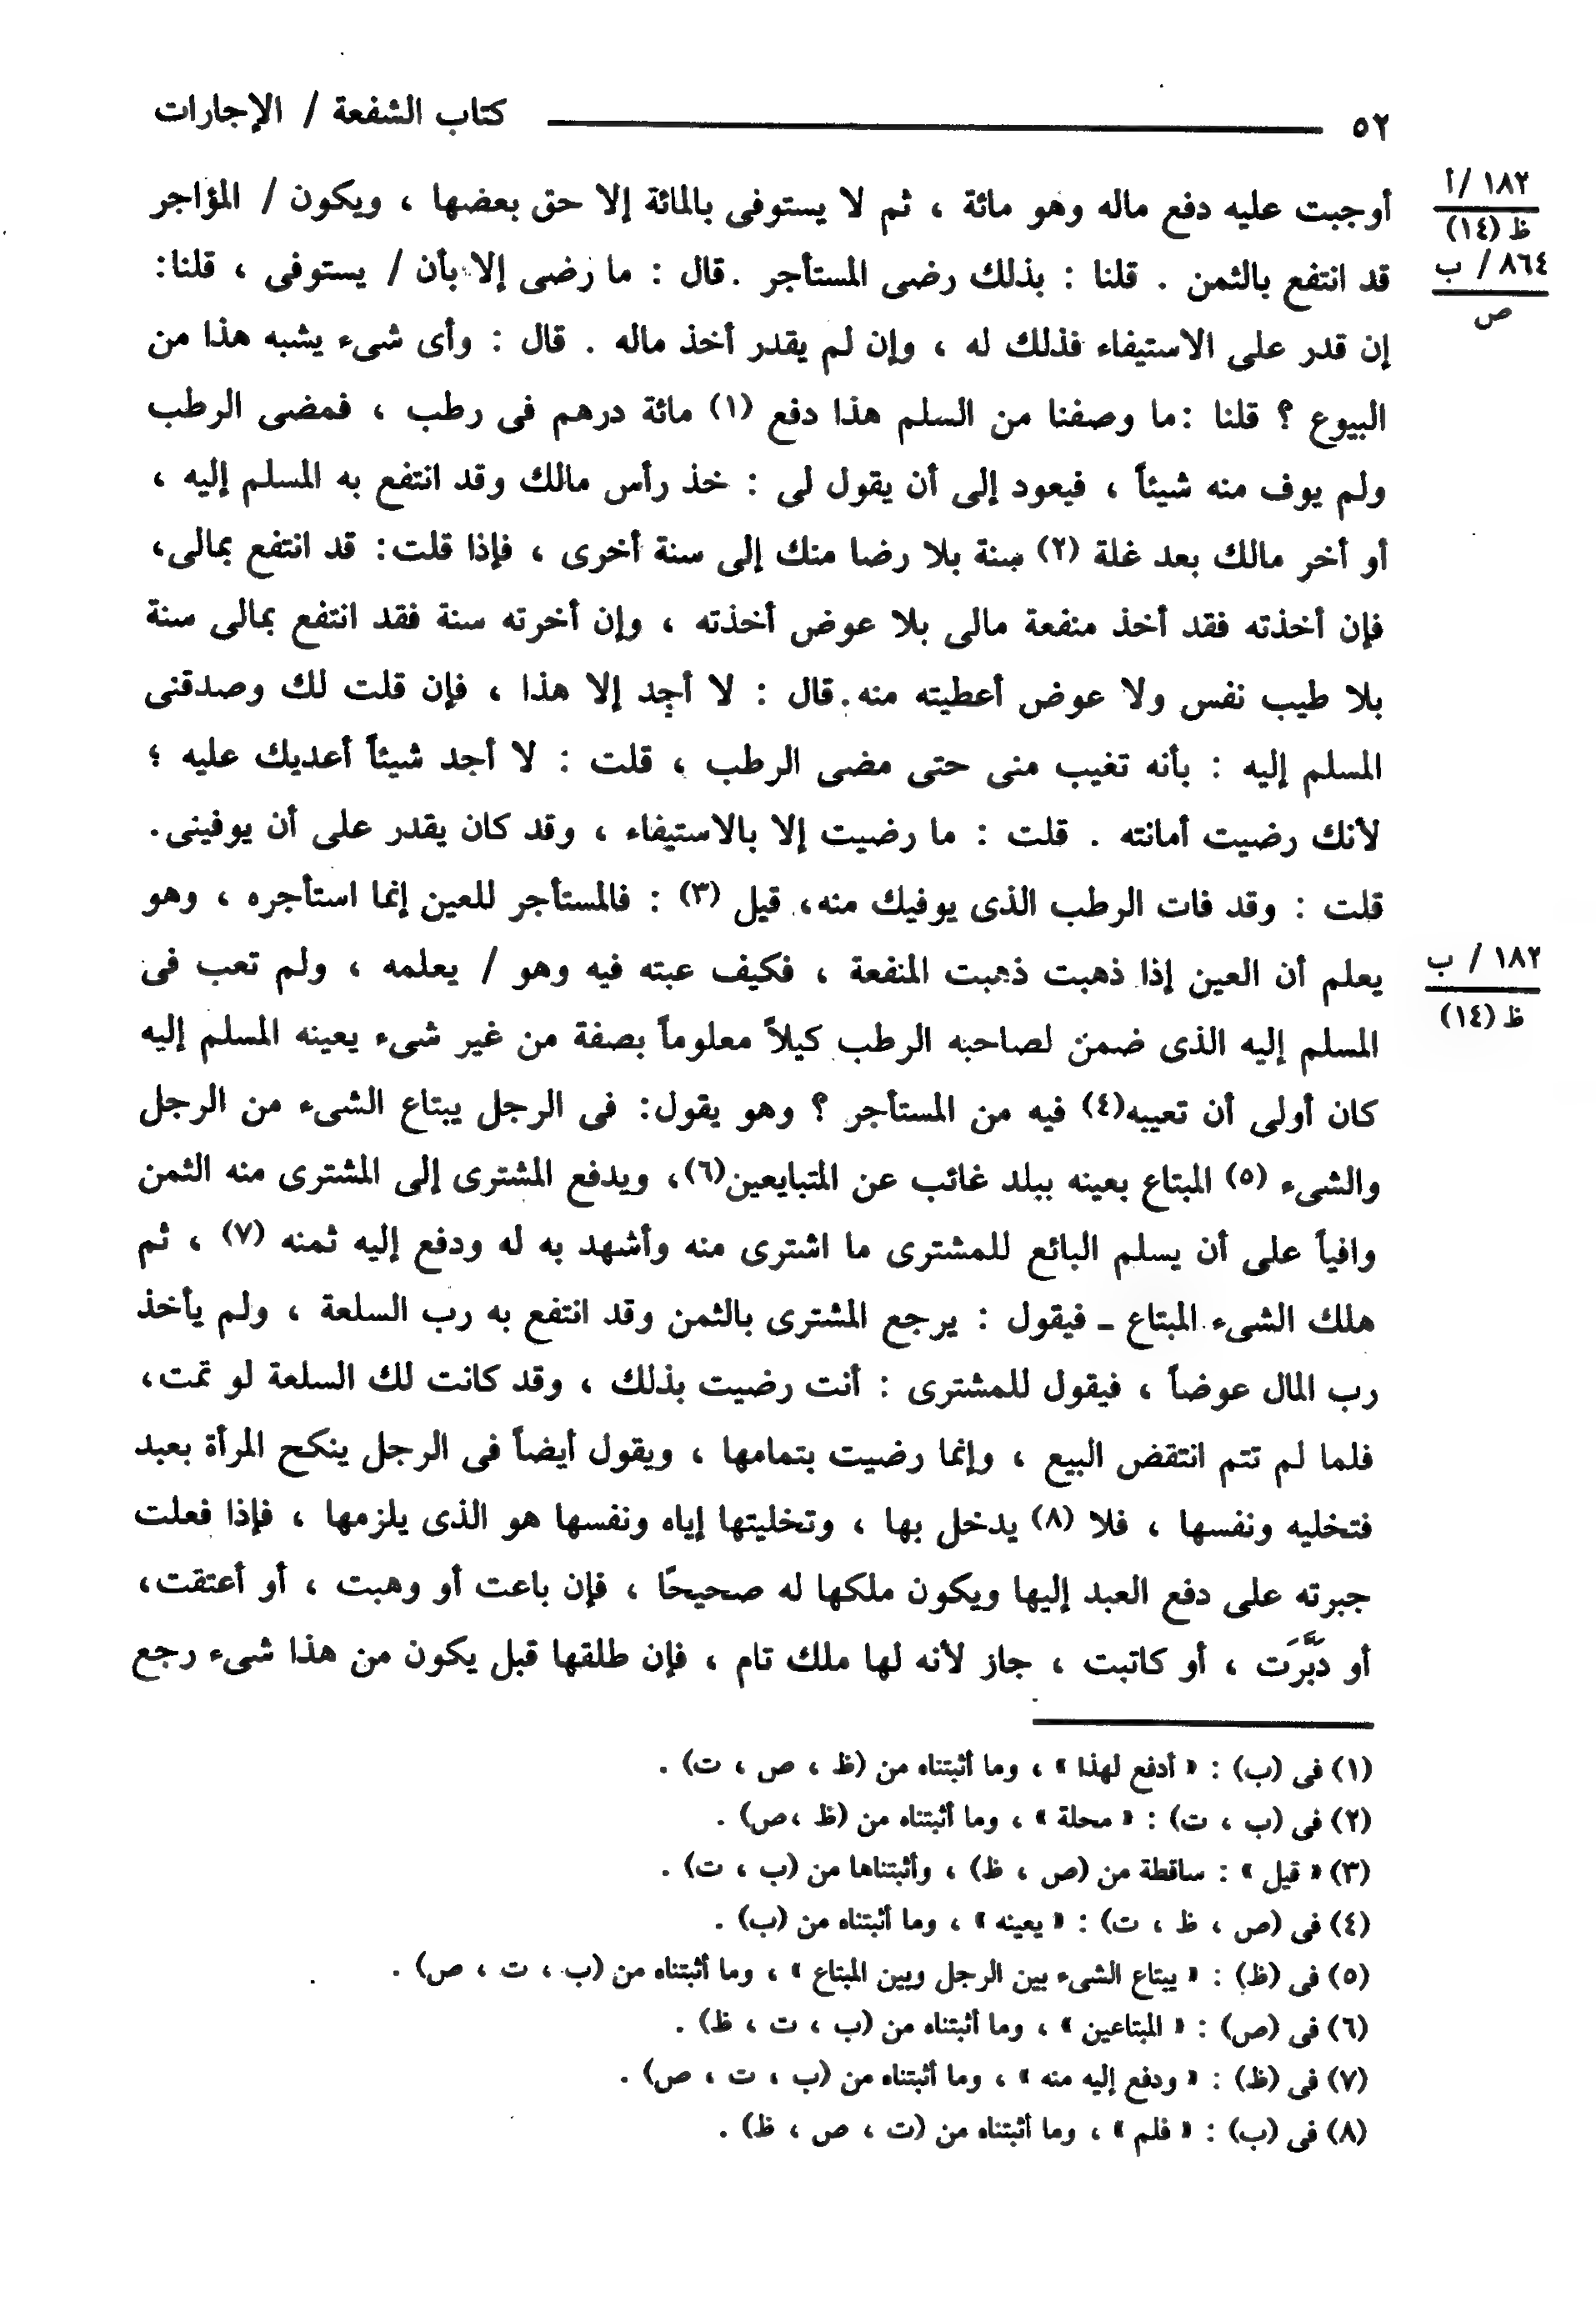 ٥٢ كتاب الشفعة / الإجارات
١٨٢ /أ
ظ (١٤)
٨٦٤ / ب
ص
أوجبت عليه دفع ماله وهو مائة ، ثم لا يستوفى بالمائة إلا حق بعضها ، ويكون / المؤاجر
قد انتفع بالثمن . قلنا : بذلك رضى المستأجر . قال : ما رضى إلا بأن / يستوفى ، قلنا :
إن قدر على الاستيفاء فذلك له ، وإن لم يقدر أخذ ماله . قال : وأى شىء يشبه هذا من
البيوع ؟ قلنا : ما وصفنا من السلم هذا دفع (١) مائة درهم فى رطب ، فمضى الرطب
ولم يوف منه شيئاً ، فيعود إلى أن يقول لى : خذ رأس مالك وقد انتفع به المسلم إليه ،
أو أخر مالك بعد غلة (٢) سنة بلا رضا منك إلى سنة أخرى ، فإذا قلت : قد انتفع بمالى ،
فإن أخذته فقد أخذ منفعة مالى بلا عوض أخذته ، وإن أخرته سنة فقد انتفع بمالى سنة
بلا طيب نفس ولا عوض أعطيته منه . قال : لا أجد إلا هذا ، فإن قلت لك وصدقنى
المسلم إليه : بأنه تغيب منى حتى مضى الرطب ، قلت : لا أجد شيئاً أعديك عليه ؛
لأنك رضيت أمانته . قلت : ما رضيت إلا بالاستيفاء ، وقد كان يقدر على أن يوفينى .
قلت : وقد فات الرطب الذى يوفيك منه ، قيل (٣) : فالمستأجر للعين إنما استأجره ، وهو
يعلم أن العين إذا ذهبت ذهبت المنفعة ، فكيف عبته فيه وهو / يعلمه ، ولم تعب فى
١٨٢ / ب
ظ (١٤)
المسلم إليه الذى ضمن لصاحبه الرطب كيلاً معلوماً بصفة من غير شىء يعينه المسلم إليه
كان أولى أن تعيبه(٤) فيه من المستأجر ؟ وهو يقول : فى الرجل يبتاع الشىء من الرجل
والشىء (٥) المبتاع بعينه ببلد غائب عن المتبايعين(٦) ، ويدفع المشترى إلى المشترى منه الثمن
وافياً على أن يسلم البائع للمشترى ما اشترى منه وأشهد به له ودفع إليه ثمنه (٧) ، ثم
هلك الشىء المبتاع ـ فيقول : يرجع المشترى بالثمن وقد انتفع به رب السلعة ، ولم يأخذ
رب المال عوضاً ، فيقول للمشترى : أنت رضيت بذلك ، وقد كانت لك السلعة لو تمت ،
فلما لم تتم انتقض البيع ، وإنما رضيت بتمامها ، ويقول أيضاً فى الرجل ينكح المرأة بعبد
فتخليه ونفسها ، فلا (٨) يدخل بها ، وتخليتها إياه ونفسها هو الذى يلزمها ، فإذا فعلت
جبرته على دفع العبد إليها ويكون ملكها له صحيحًا ، فإن باعت أو وهبت ، أو أعتقت ،
أو دَبَّرَت ، أو كاتبت ، جاز لأنه لها ملك تام ، فإن طلقها قبل يكون من هذا شىء رجع
(١) فى (ب) : « أدفع لهذا » ، وما أثبتناه من (ظ ، ص ، ت) .
(٢) فى (ب ، ت) : « محلة » ، وما أثبتناه من (ظ ، ص) .
(٣) « قيل » : ساقطة من (ص ، ظ) ، وأثبتناها من (ب ، ت) .
(٤) فى (ص ، ظ ، ت) : « يعينه » ، وما أثبتناه من (ب) .
(٥) فى (ظ) : « يبتاع الشىء بين الرجل وبين المبتاع » ، وما أثبتناه من (ب ، ت ، ص) .
(٦) فى (ص) : « المبتاعين » ، وما أثبتناه من (ب ، ت ، ظ) .
(٧) فى (ظ) : « ودفع إليه منه » ، وما أثبتناه من (ب ، ت ، ص) .
(٨) فى (ب) : « فلم » ، وما أثبتناه من (ت ، ص ، ظ) .